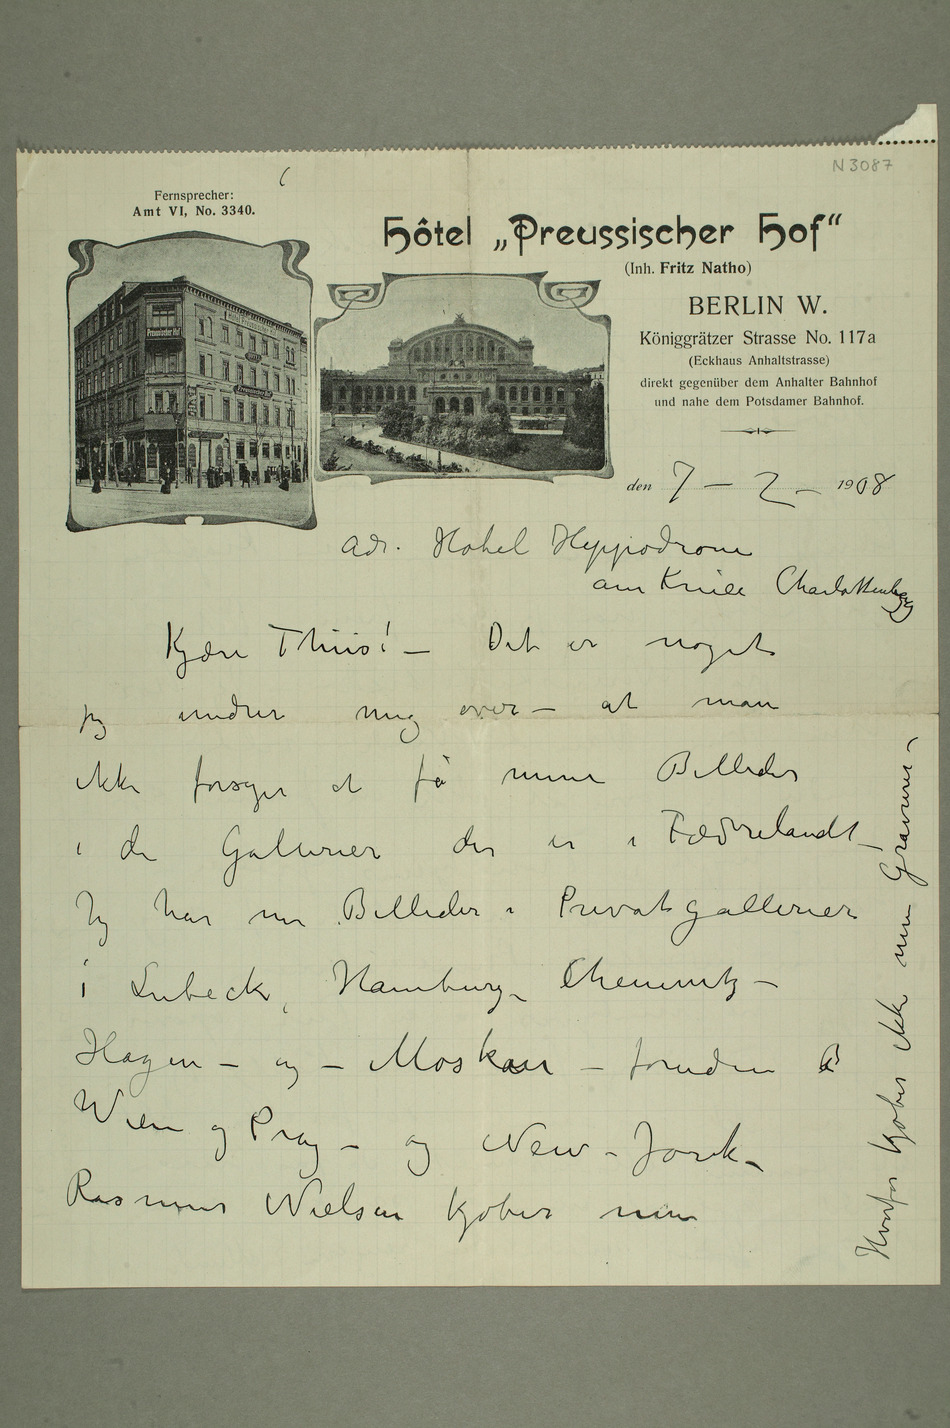 N 3087
Fernsprecher:
Amt VI, No. 3340.
Hôtel „Preussischer Hof“
(Inh. Fritz Natho)
BERLIN W.
Königgrätzer Strasse No. 117a
(Eckhaus Anhaltstrasse)
direkt gegenüber dem Anhalter Bahnhof
und nahe dem Potsdamer Bahnhof.
den 7 – 2 – 1908
adr. Hotel Hippodrom
am Knie Charlottenburg
Kjære Thiis! – Det er noget
jeg undrer mig over – at man
ikke forsøger at få mine Billeder
i de Gallerier der er i Fædrelandt –
Jeg har nu Billeder i Privatgallerier
i Lubeck, Hamburg – Chemnitz –
Hagen – og – Moskau – foruden B
Wien og Prag – og New-Jork –
Rasmus Nielsen kjøber min
Hvorfor kjøber ikke min Gravurer –